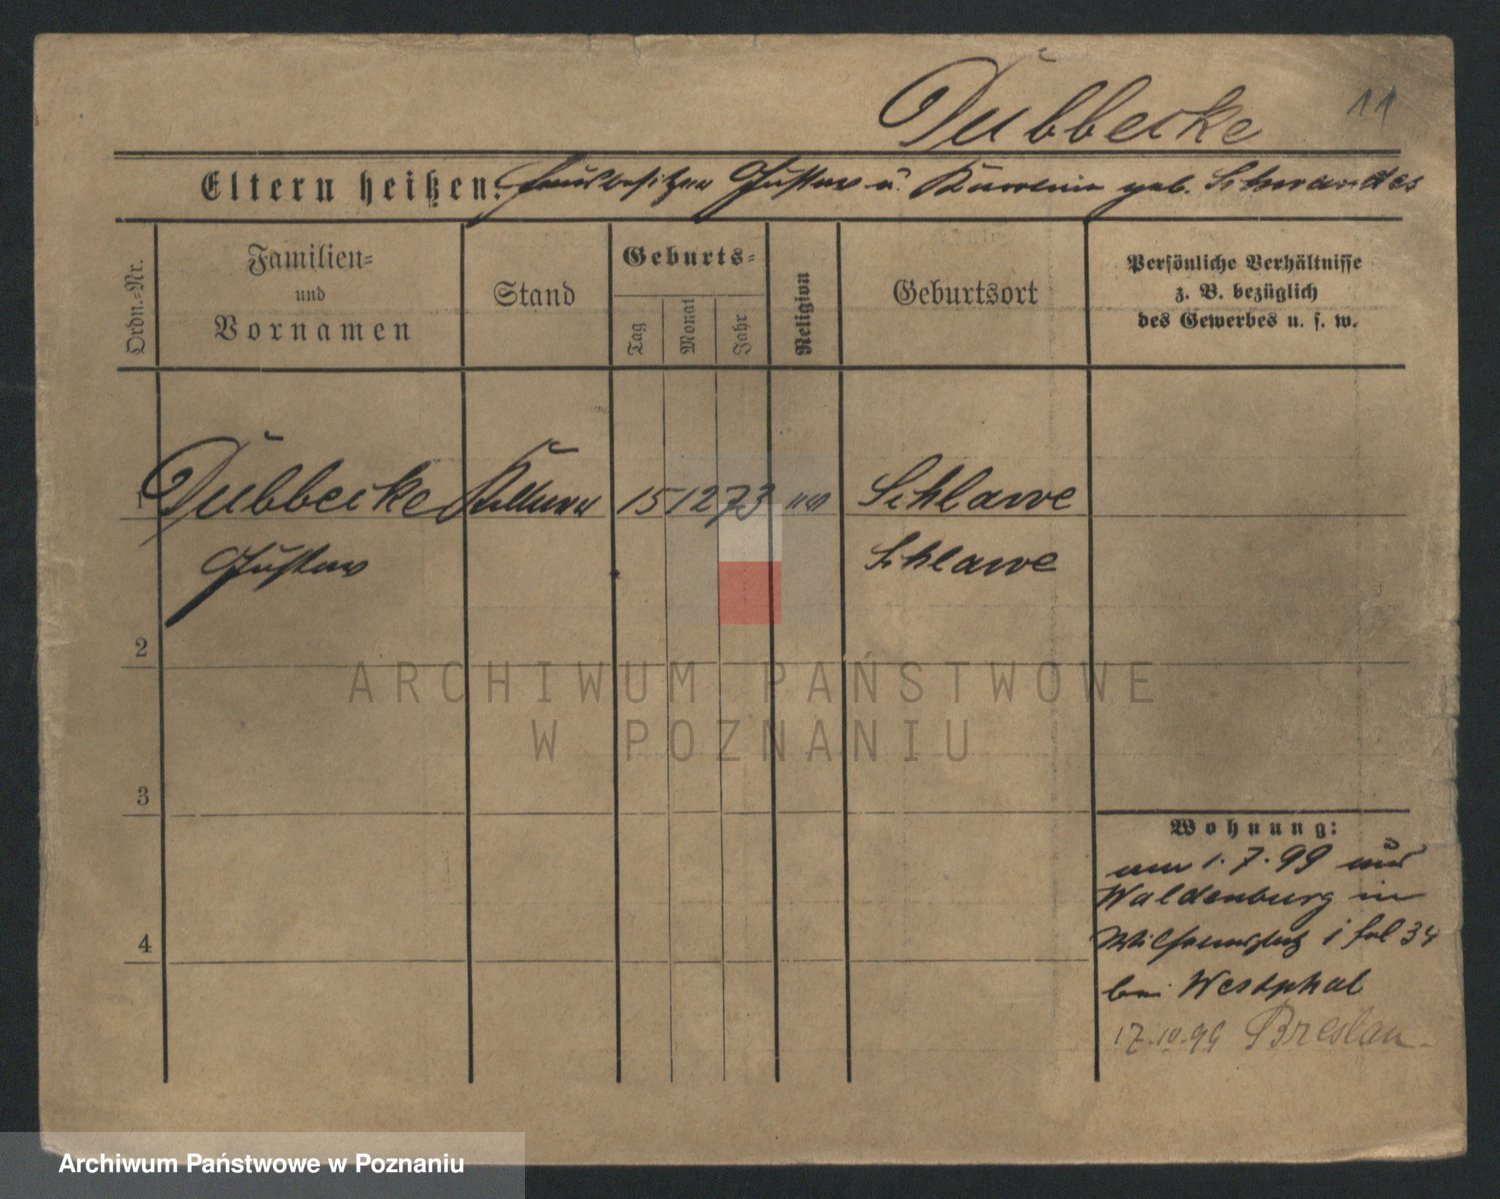 Dubbecke 11
Eltern heißen: Hausbesitzer Gustav u. Karoline geb. Schwandes
Ordn.-Nr.
Familien-
und
Vornamen
Stand
Geburts-
Tag
Monat
Jahr
Religion
Geburtsort
Persönliche Verhältnisse
z. B. bezüglich
des Gewerbes u. s. w.
1 Dubbecke Kellner 15 12 73 Schlawe
Gustav Schlawe
2
3
4
Wohnung:
am 1.7.99 aus
Waldenburg in
34
bei Westphal
17.10.99 Breslau
ARCHIWUM PAŃSTWOWE
W POZNANIU
Archiwum Państwowe w Poznaniu